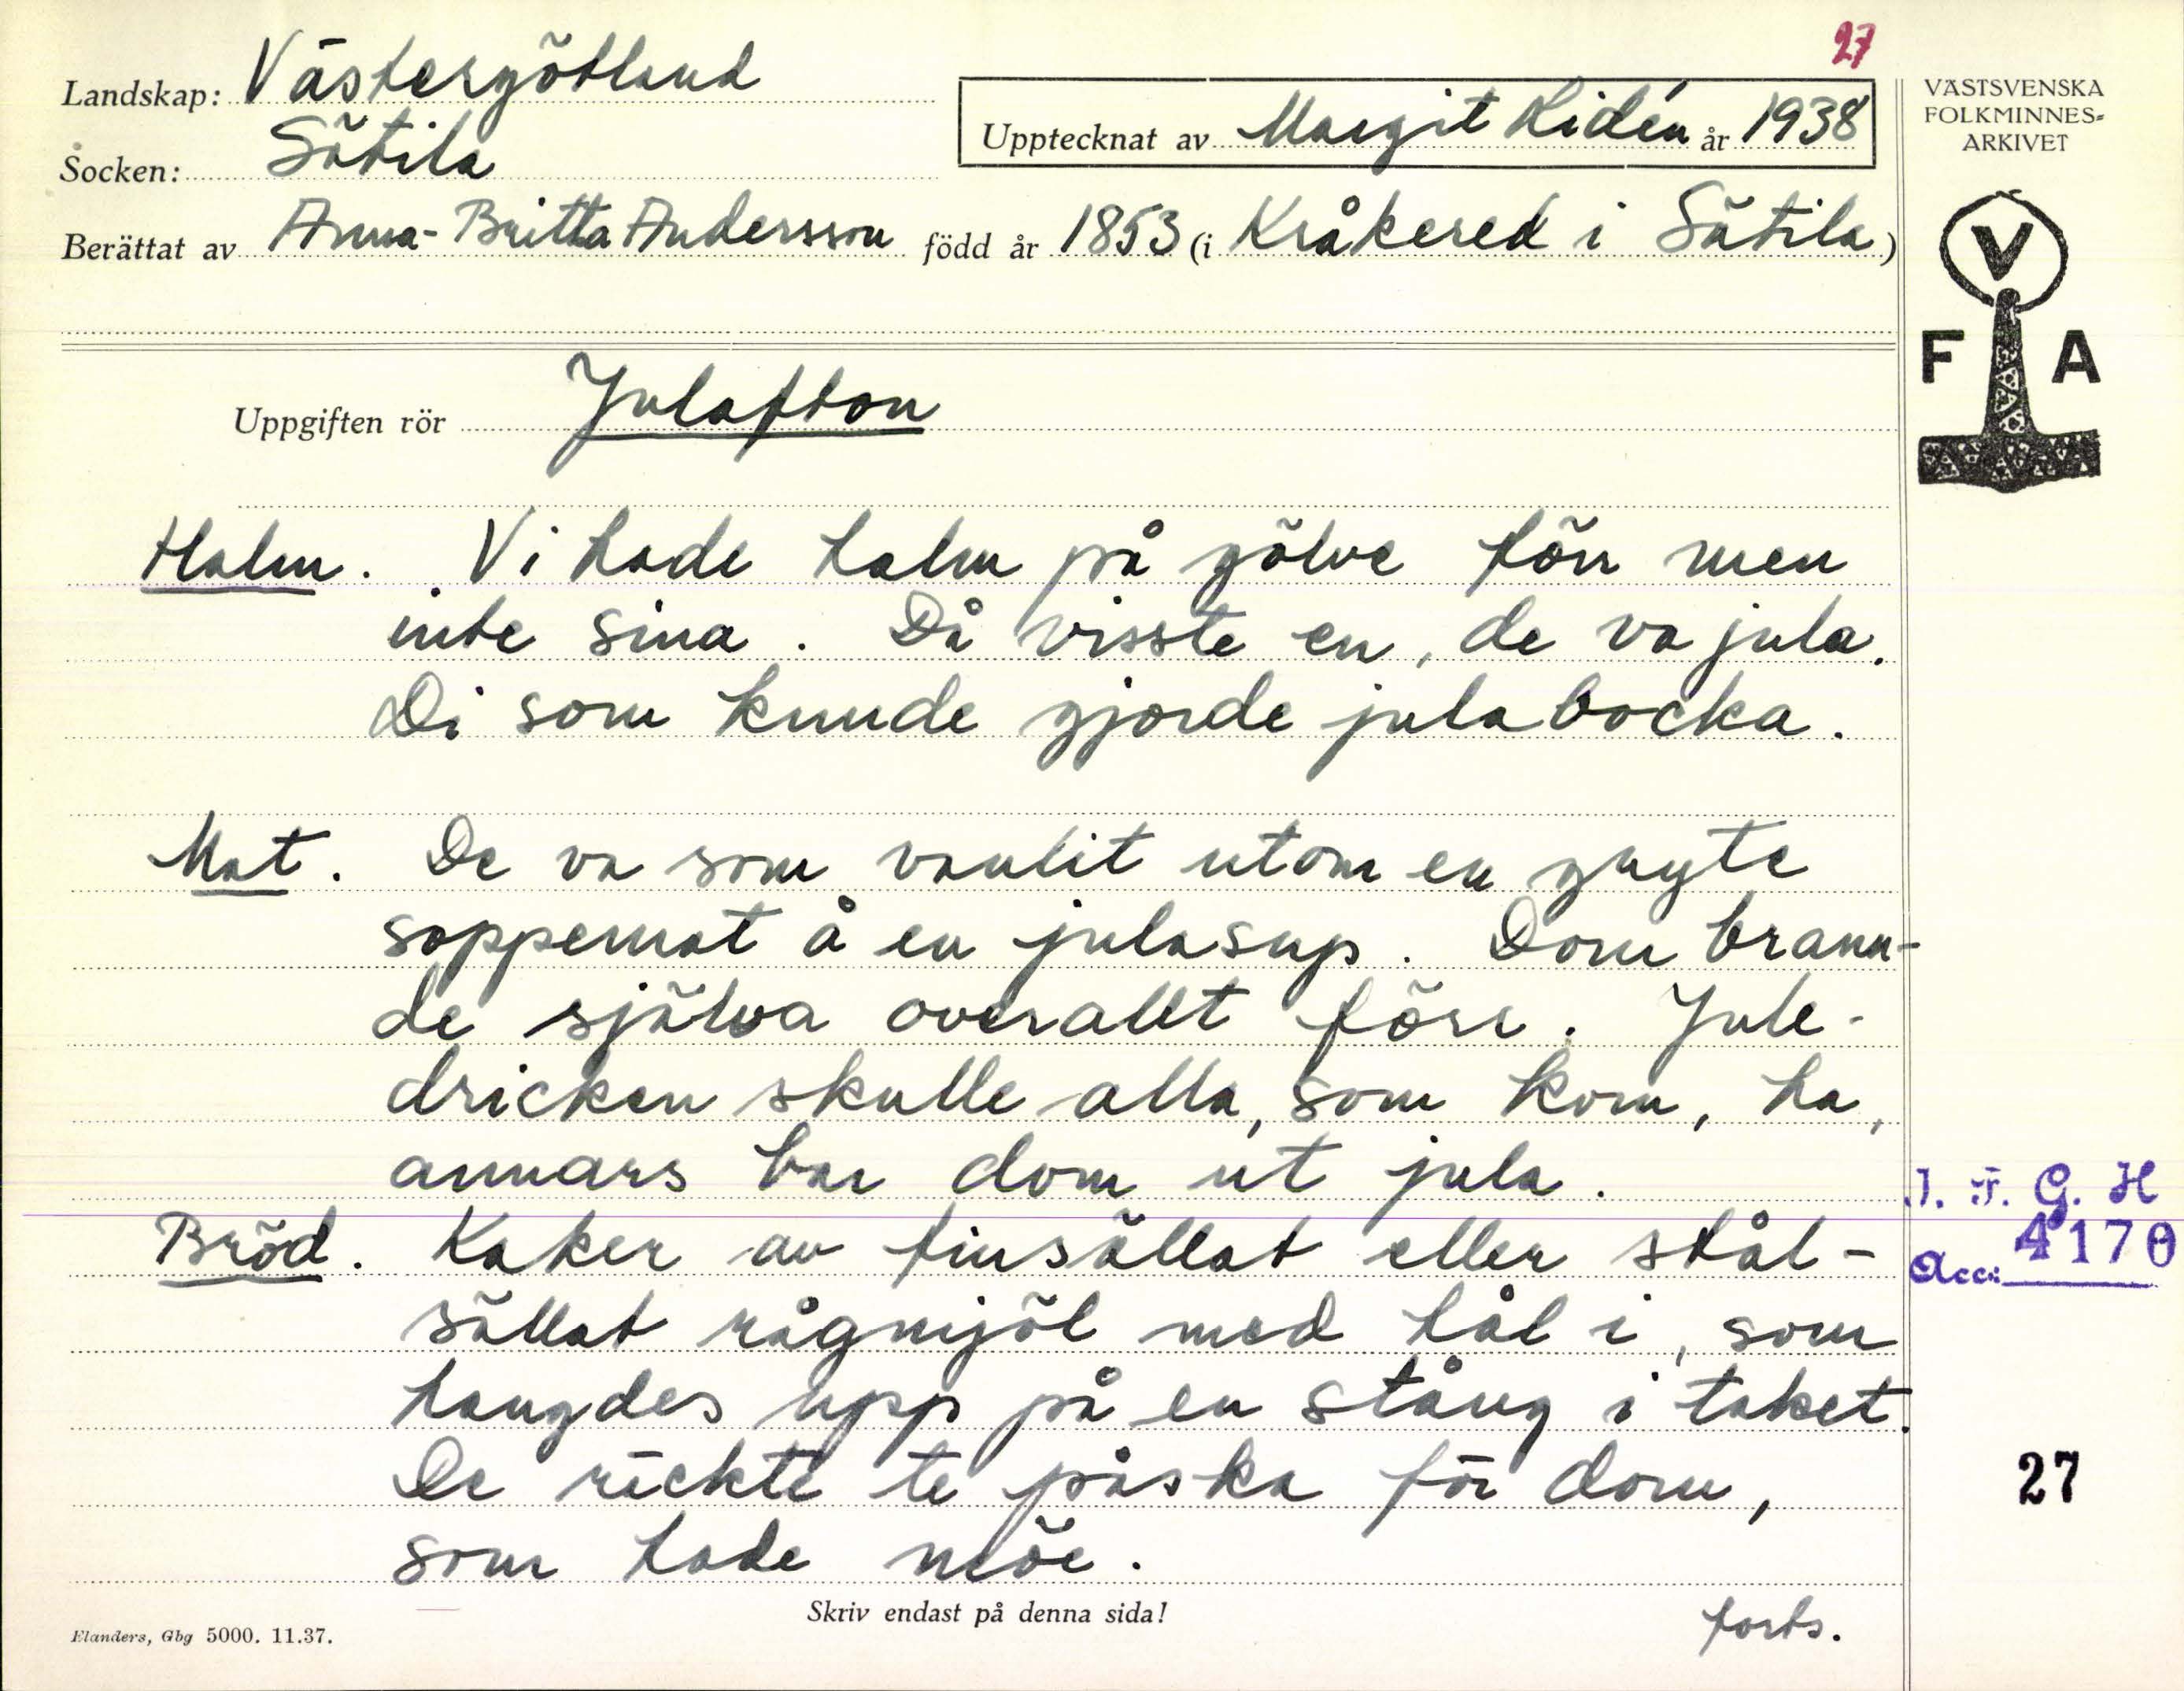 27
Landskap: Västergötland
Socken: Sätila
Upptecknat av Margit Lidén år 1938
Berättat av Anna-Britta Andersson född år 1853 (i Kråkered i Sätila)
VÄSTSVENSKA
FOLKMINNES=
ARKIVET
V
F A
Uppgiften rör Julafton
Halm. Vi hade halm på gölve förr men
inte sina. Då visste en, de va jula.
Di som kunde gjorde julabocka.
Mat. De va som vanlit utom en gryte
soppemat å en julasup. Dom brann-
de själva overallt förr. Jule-
dricken skulle alla, som kom, ha,
annars bar dom ut jula.
Bröd. Kaker av finsållat eller stål-
sållat rågmjöl med hål i, som
hangdes upp på en stång i taket.
De räckte te påska för dom,
som hade möe.
I. F. G. H
Acc: 4170
27
Skriv endast på denna sida!
forts.
Elanders, Gbg 5000. 11.37.